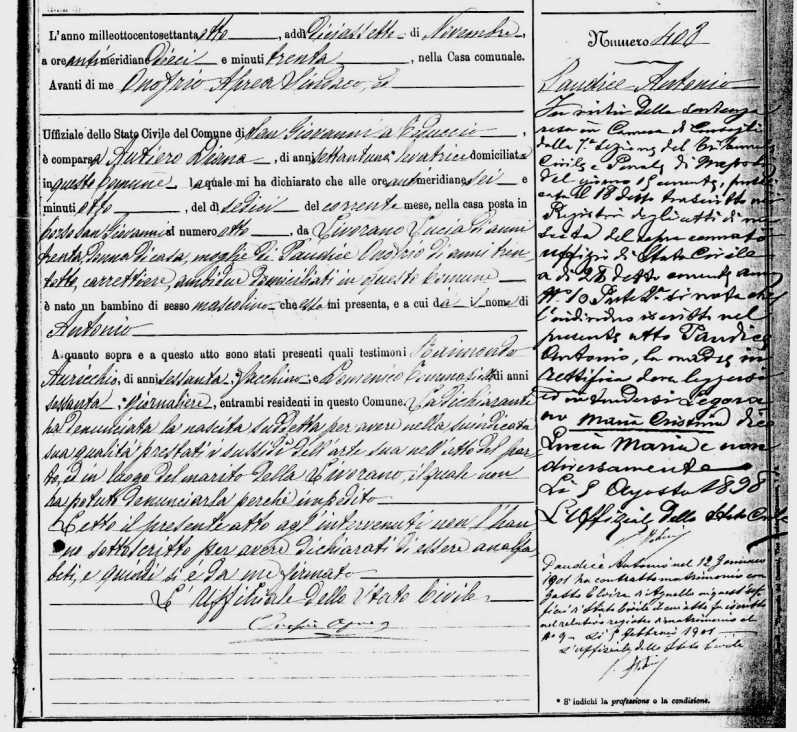 L'anno milleottocentosettantotto, addì Diciassette di Novembre,
a ore antimeridiane Dieci e minuti trenta, nella Casa comunale.
Avanti di me Onofrio Aprea Sindaco, ed
Uffiziale dello Stato Civile del Comune di San Giovanni a Teduccio,
è comparsa Autiero Diana, di anni settantuno, levatrice domiciliata
in questo Comune, la quale mi ha dichiarato che alle ore antimeridiane sei e
minuti otto, del dì sedici del corrente mese, nella casa posta in
Corso San Giovanni al numero otto, da Livorano Lucia di anni
trenta, donna di casa, moglie di Paudice Onofrio di anni tren
totto, carrettiere, ambidue domiciliati in questo Comune
è nato un bambino di sesso mascolino che essa mi presenta, e a cui dà il nome di
Antonio
A quanto sopra e a questo atto sono stati presenti quali testimoni Raimondo
Auricchio, di anni sessanta, facchino, e Domenico di anni
sessanta, giornaliere, entrambi residenti in questo Comune. La dichiarante
ha denunciata la nascita suddetta per avere nella suindicata
sua qualità prestati i sussidi dell'arte sua nell'atto del par
to, ed in luogo del marito della Livorano, il quale non
ha potuto denunciarla perchè impedito
Letto il presente atto agl'intervenuti non l'han
no sottoscritto per avere dichiarati di essere analfa
beti, e quindi si è da me firmato
L'Uffiziale dello Stato Civile
Onofrio Aprea
Numero 403
Paudice Antonio
In virtù della sentenza
resa in Camera di Consiglio
dalla 7.a Sezione del Tribunale
Civile e Penale di Napoli
del giorno 15 corrente, pubbli
cata il 18 detto trascritta nei
Registri degli atti di na
scita del sopra connato
uffizio di Stato Civile
a dì 28 detto corrente anno
N.o 10 Parte 2.a si nota che
l'individuo iscritto nel
presente atto Paudice
Antonio, la madre in
rettifica deve leggersi
ed intendersi Legora
no Maria Cristina di
Lucia Maria e non
diversamente
Li 5 Agosto 1898
L'Uffiziale dello Stato Civile
Paudice Antonio nel 12 Gennaio
1901 ha contratto matrimonio con
Gatto Elvira d'Aniello in quest'Uf
fizio di Stato Civile
nel relativo registro di matrimonio al
N.o 9 - Li 5 febbraio 1901
L'uffiziale dello Stato Civile
* S'indichi la professione o la condizione.